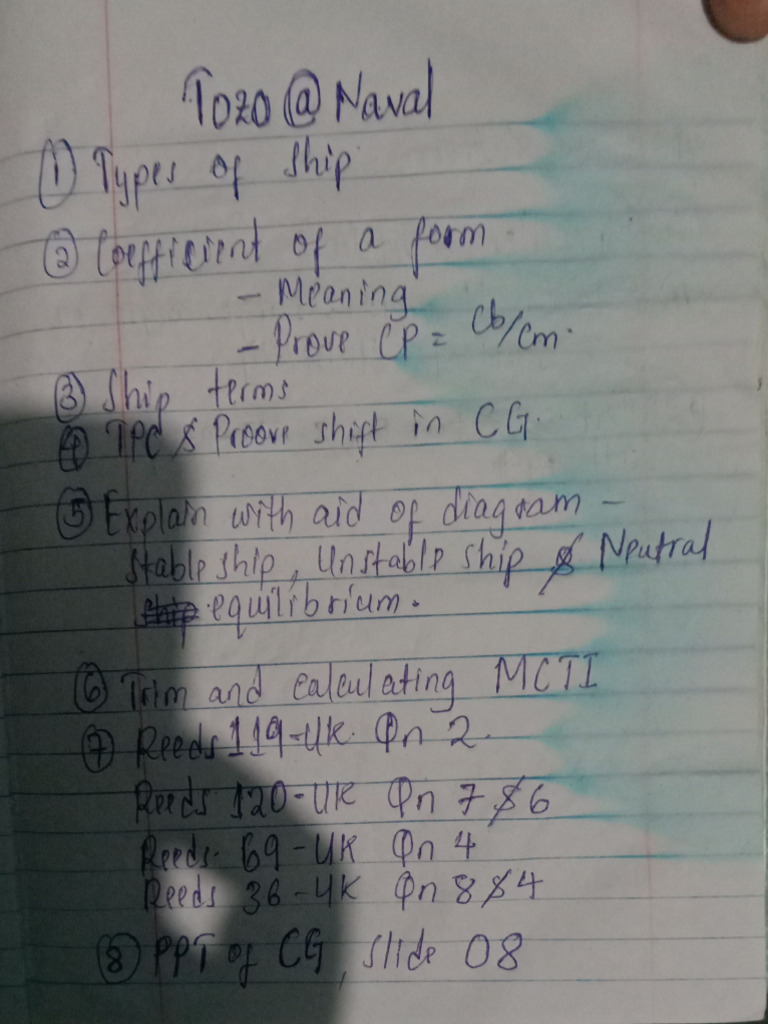 Tozo @ Naval
① Types of ship
② Coefficient of a form
- Meaning
- Prove CP = Cb/Cm.
③ Ship terms
④ TPC & Proove shift in CG.
⑤ Explain with aid of diagram -
Stable ship, Unstable ship & Neutral
equilibrium.
⑥ Trim and calculating MCTI
⑦ Reeds 119-UK. Qn 2.
Reeds 120-UK Qn 7 & 6
Reeds. 69-UK Qn 4
Reeds 36-UK Qn 8 & 4
⑧ PPT of CG, slide 08